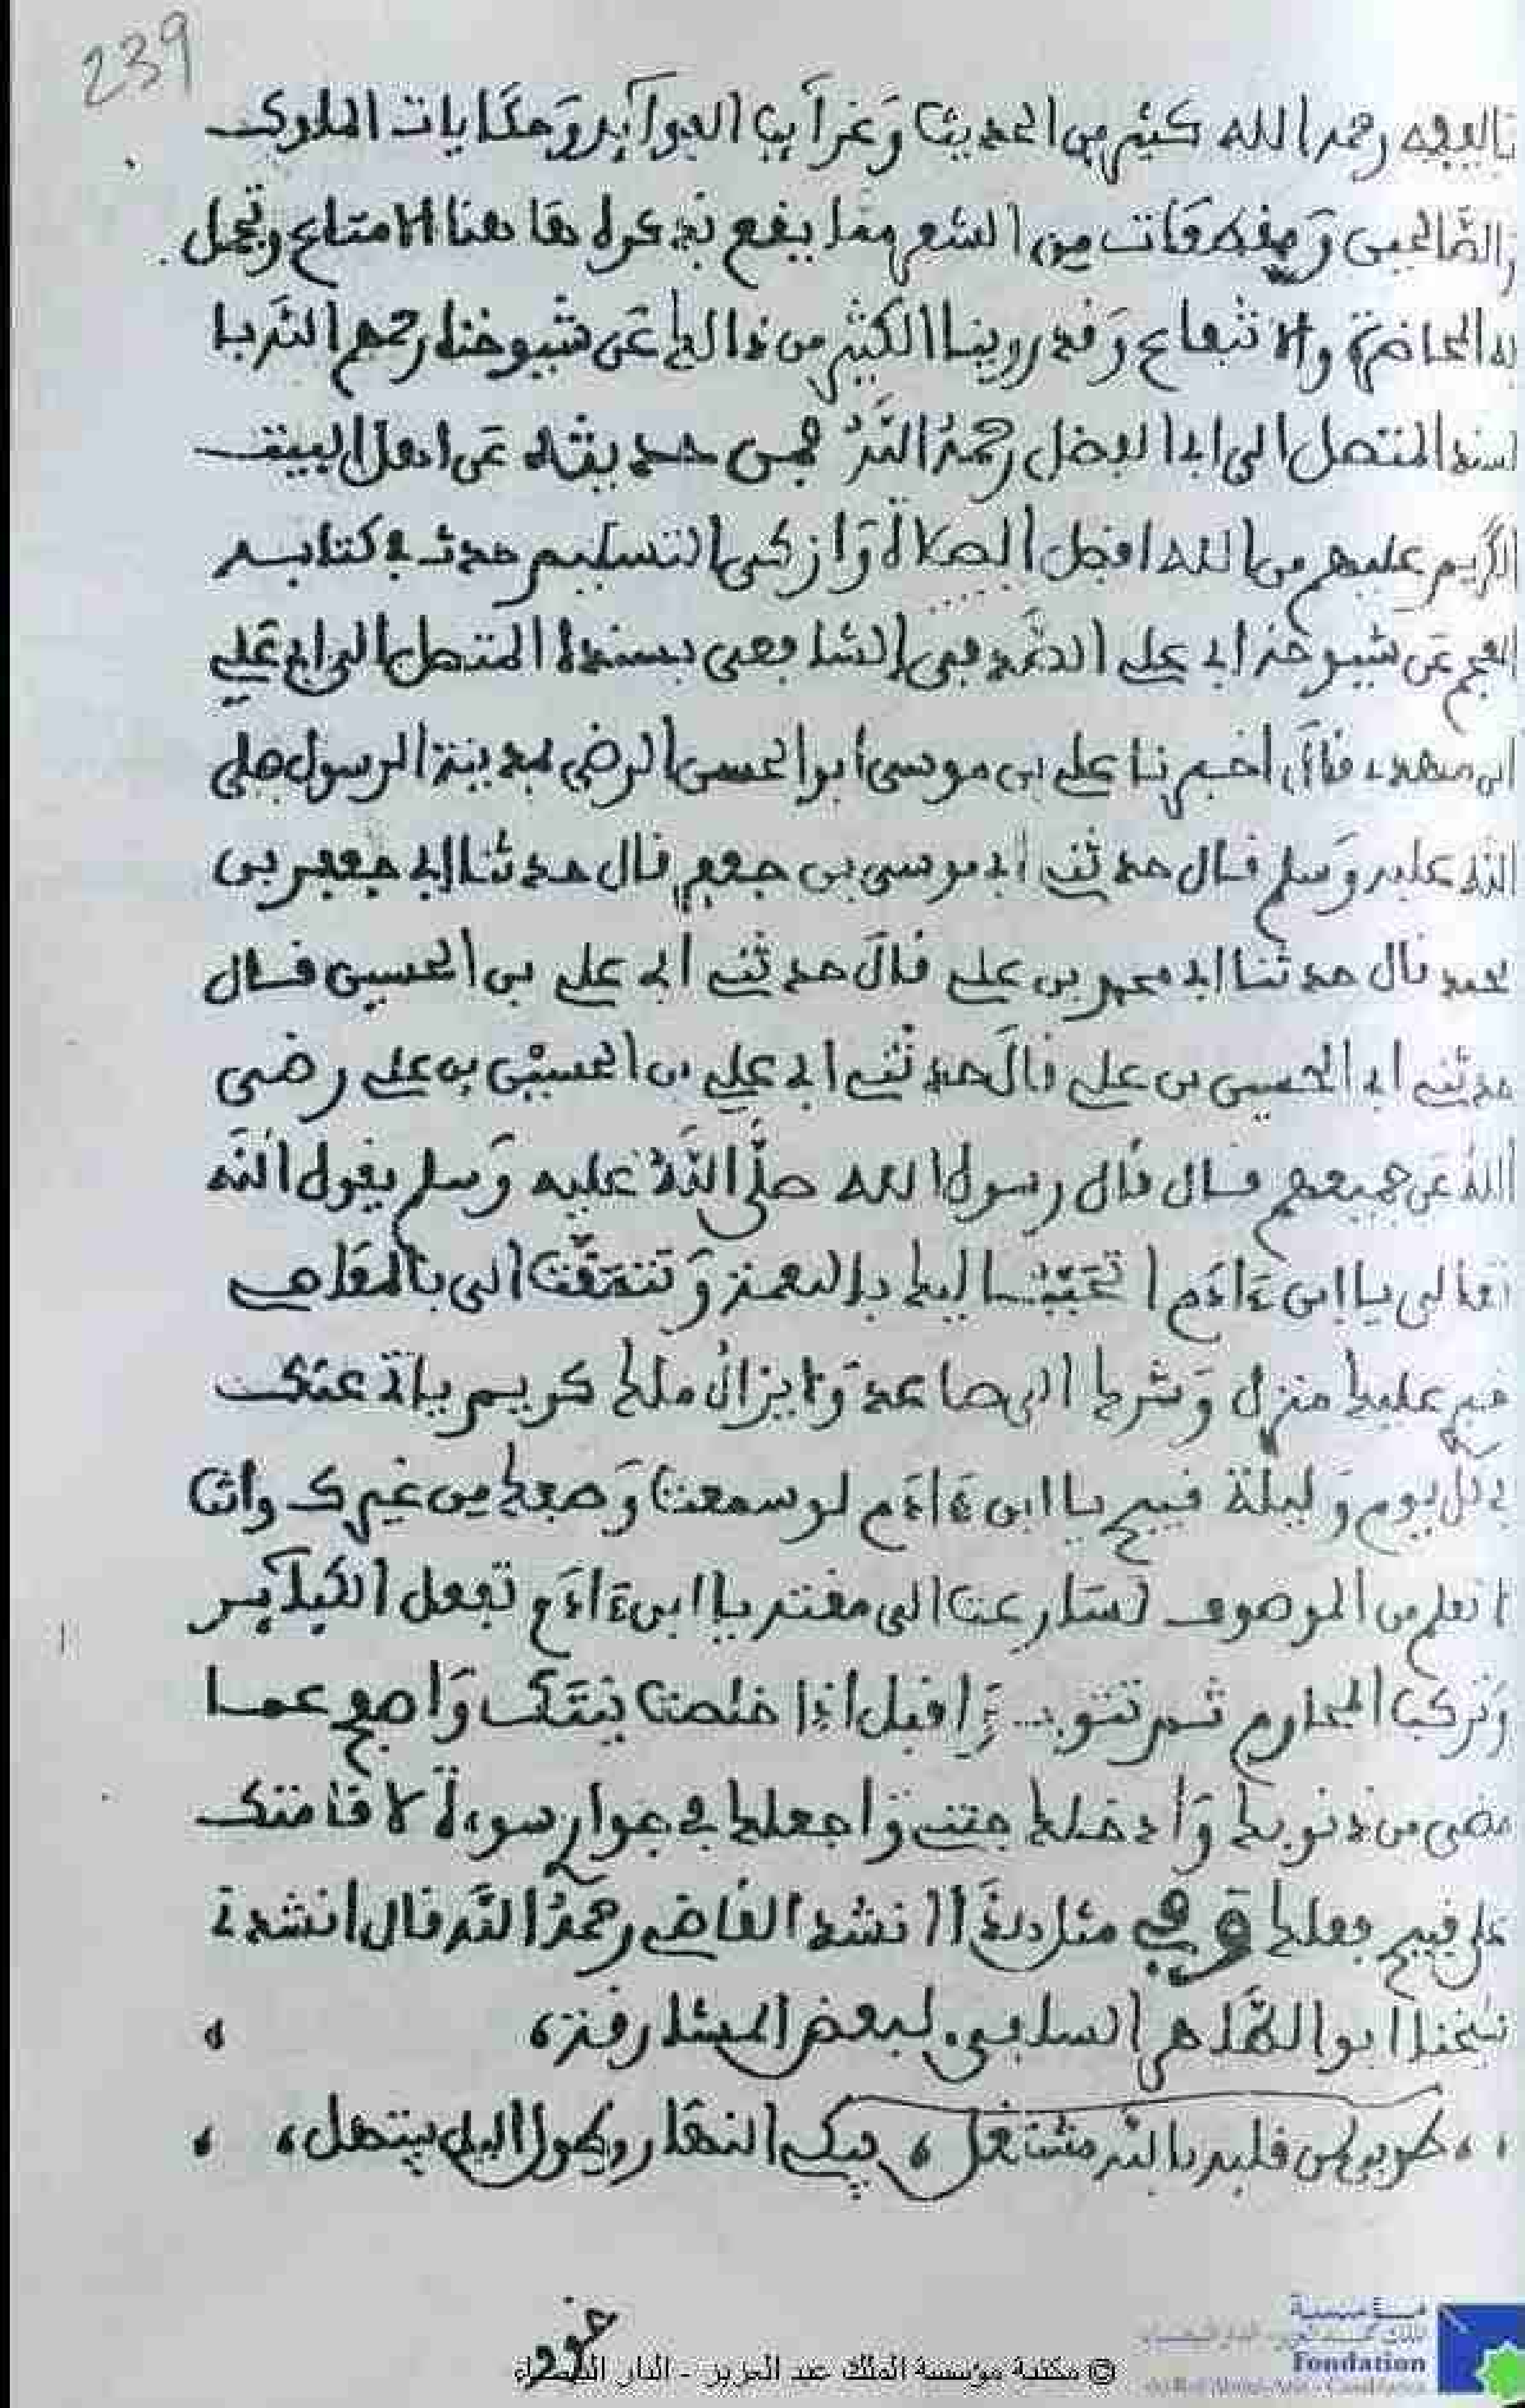 239
بالفقه رحمه الله كثير من الحديث وَغرآيب الفوآيد وَحكايات الملوك
والصَّالحين وَمقطعات من الشعر مما يقع بذكره هاهنا الامتاع وتجمل
به المحاضرة والانتفاع وَقد روينا الكثير من ذالك عَن شيوخنا رحمهم اللَّه با
لسند المتصل الى ابي الفضل رحمهُ اللَّهُ فمن حديثه عن اهل البيت
الكريم عليهم من الله افضل الصلاة وَازكى التسليم حدث في كتابه
المعجم عَن شيوخه ابي علي الصَّدفي الشافعي بسنده المتصل الى ابي عَلي
ابن مهدي قاَل اخبرنا علي بن موسى ابو الحسن الرضى بمدينة الرسول صلى
الله عليه وَسلم قال حدثني ابي موسى بن جعفر قال حدثنا ابي جعفر بن
محمد قال حدثنا ابي محمد بن علي قاَل حدثني ابي علي بن الحسين قال
حدثني ابي الحسين بن علي قاَل حدثني ابي علي بن الحسين بن علي رضى
اللهُ عَن جميعهم قال قال رسول الله صلَّى اللَّهُ عليه وَسلم يقول الله
تعالى يا ابن ءاادَم اتحبّبُ اليك بالنعمة وَتتمَقّت الى بالمعاصي
خير عليك منزل وَشرك الى صاعد وَلا يزالُ ملك كريم ياتي عنك
في كل يوم وَليلة قبيح يا ابن ءاادَم لو سمعت وَصفك من غيرك وانت
لا تعلم من الموصوف لسارعت الى مقته يا ابن ءاادَم تفعل الكبآير
وَتركب المحارم ثم تتوب وَاقبل اذا خلصت نيتَك وَاصفح عما
مضى من ذنوبك وَأدخلك جنتي وَاجعلك في جوارى سوءة لاقامتك
على قبيح فعلك وَفي مثل ذلك أنشد القاضي رحمَهُ اللَّه قال انشدني
شيخنا ابو الطَّاهر السلفي لبعض المشارقة،
، ، طوبى لمن قلبه بالله مشتغل ، يبكي النهار وطول اليل يبتهل، ،
خوو
© مكتبة مؤسسة الملك عبد العزيز - الدار البيضاء
مؤسسة
Fondation